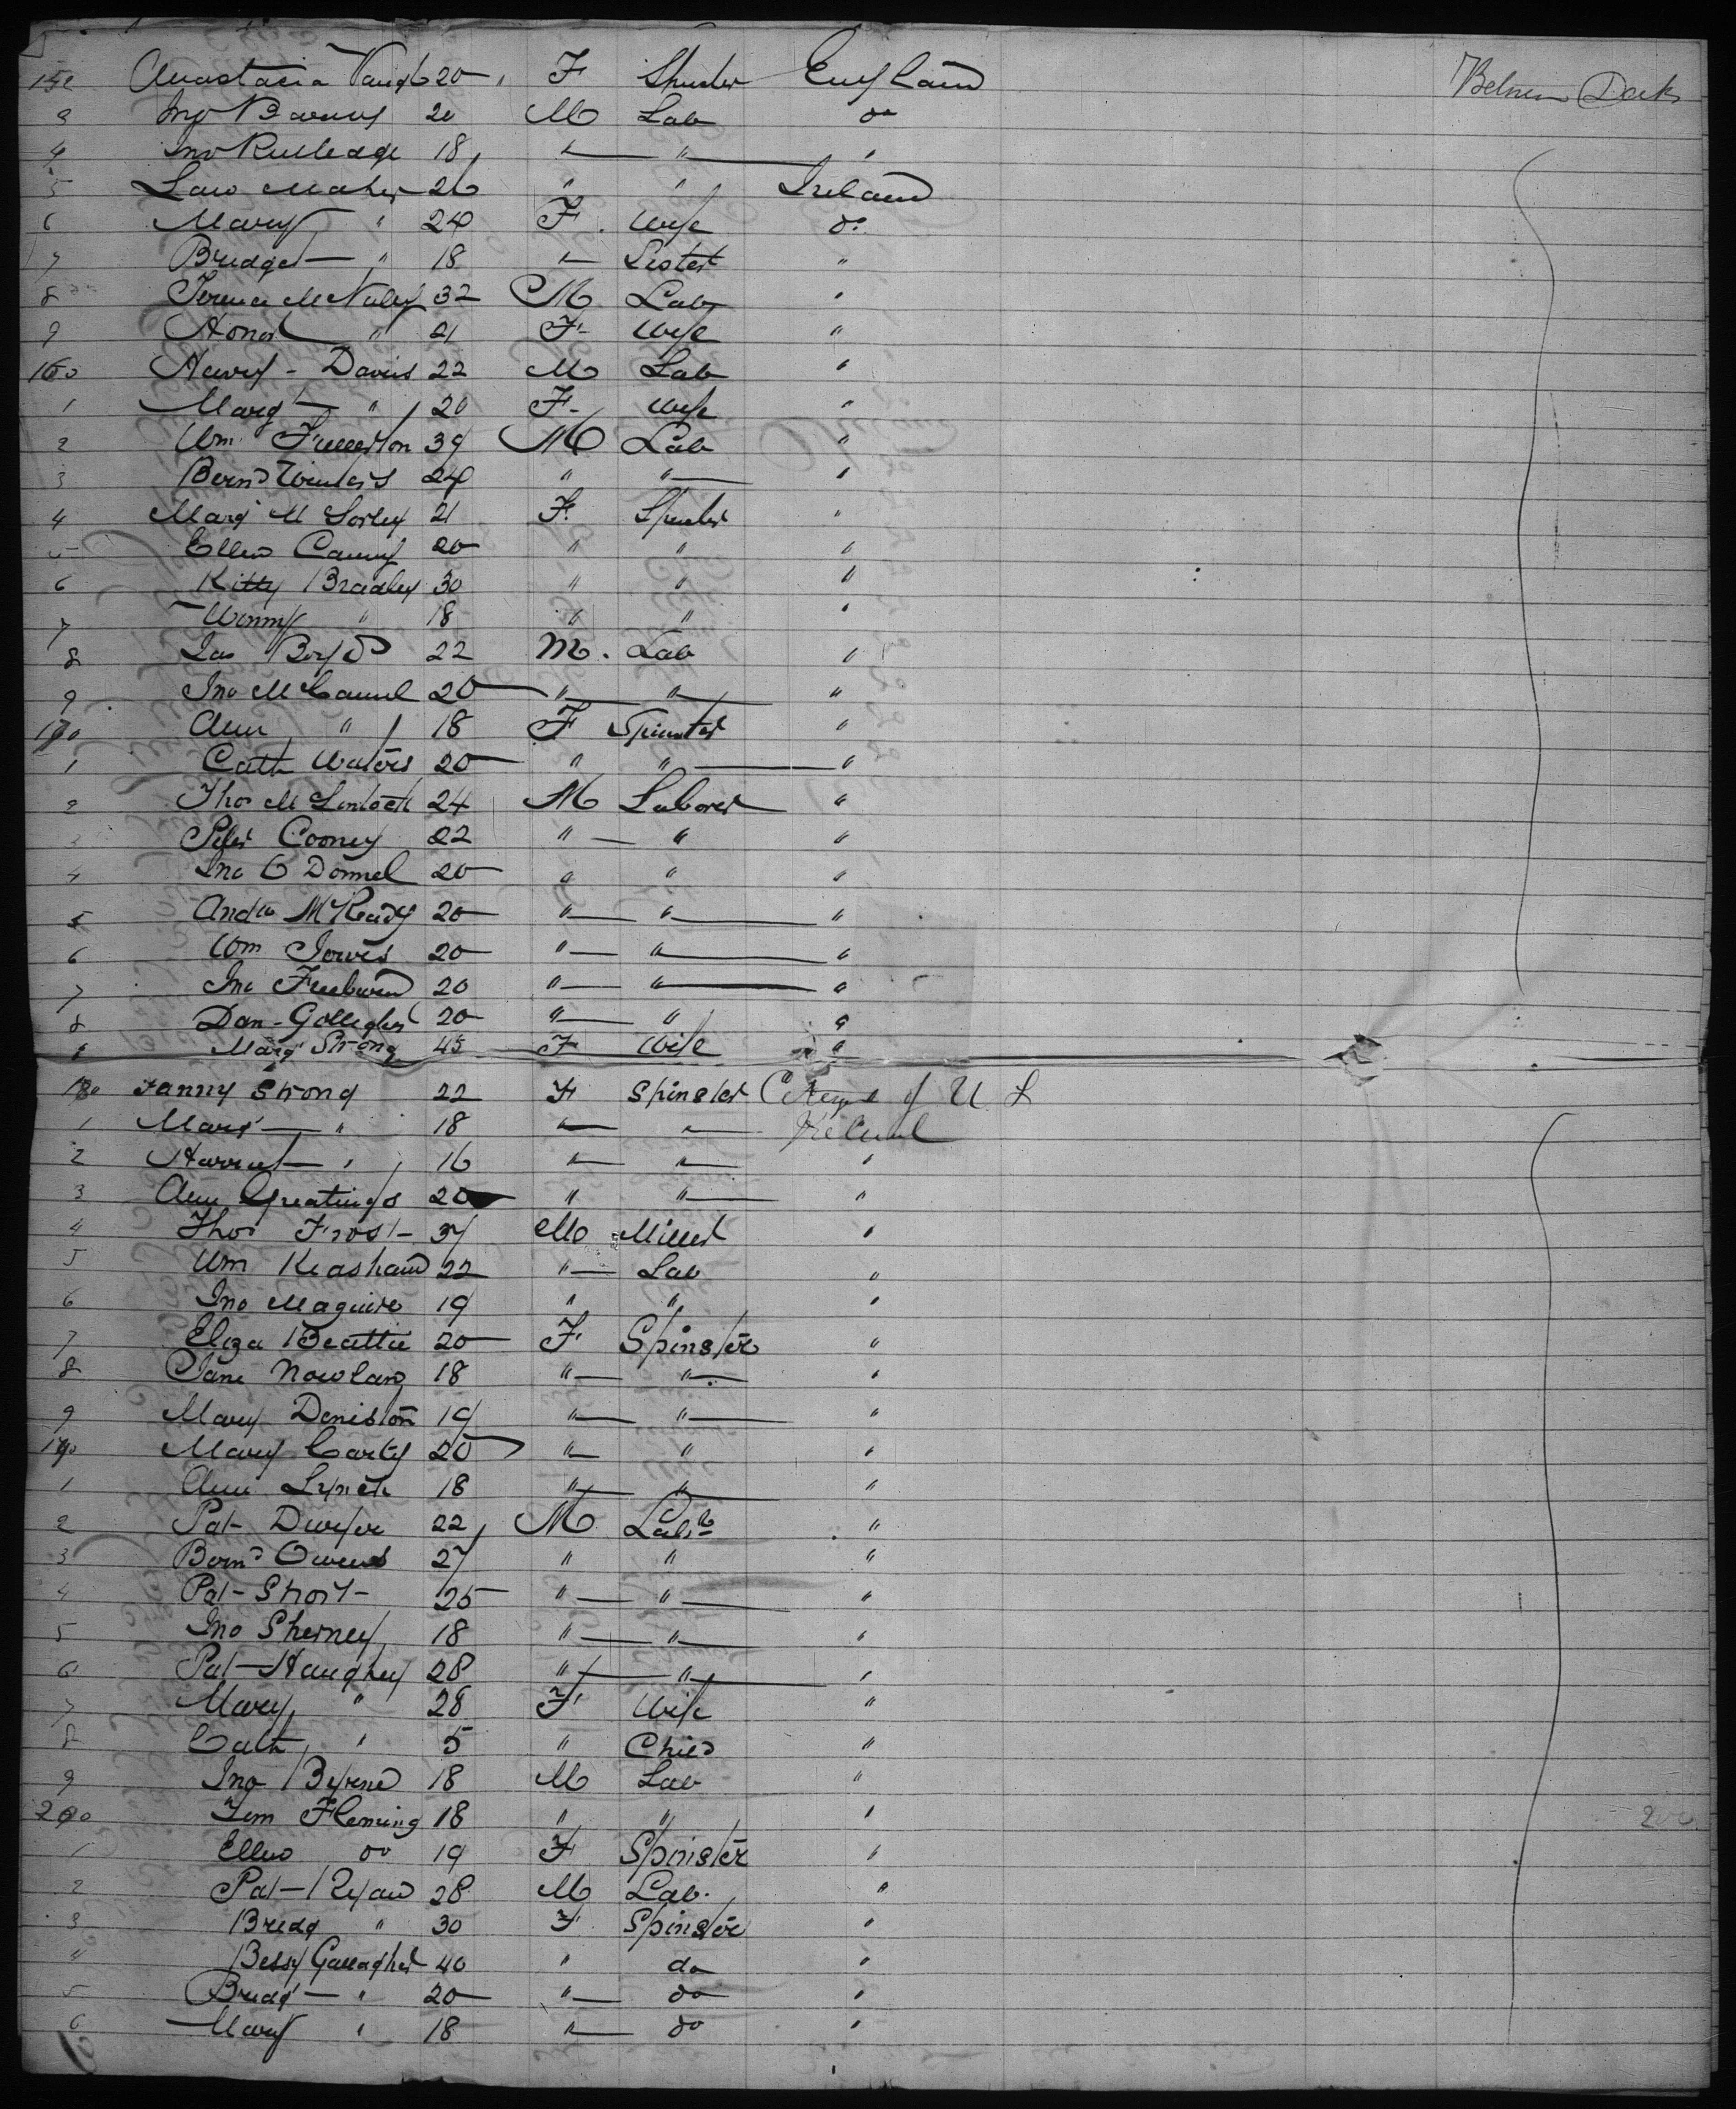 152 Anastacia Vaugh 20 F Spinster England Between Decks
3 Jno Barnes 20 M Lab do
4 Jno Rutledge 18 " " "
5 Law Maher 26 " " Ireland
6 Mary " 24 F. Wife do
7 Bridget " 18 " Sister "
8 Terence McNulty 32 M. Lab "
9 Honor " 21 F Wife "
160 Henry Davis 22 M Lab "
1 Margt " 20 F Wife "
2 Wm Fullerton 39 M Lab "
3 Bernd Winters 24 " " "
4 Marg M Sorley 21 F. Spinster "
5 Ellen Canny 20 " " "
6 Kitty Bradley 30 " " "
7 Winny " 18 " " "
8 Jas Boyd 22 M. Lab "
9 Jno McCamel 20 " " "
170 Ann " 18 F Spinster "
1 Cath Waters 20 " " "
2 Thos McLintock 24 M Laborer "
3 Peter Cooney 22 " " "
4 Jno O Donnel 20 " " "
5 Andw McReady 20 " " "
6 Wm 20 " " "
7 Jno 20 " " "
8 Dan Gollegher 20 " " "
9 Marg Strong 45 F Wife "
180 Fanny Strong 22 F Spinster Citizen of U S
1 Marg " 18 " " Ireland
2 Harriet " 16 " " "
3 Ann Greatings 20 " " "
4 Thos Frost 37 M Miller "
5 Wm 22 " Lab "
6 Jno Maguire 19 " " "
7 Eliza Beattie 20 F Spinster "
8 Jane Nowlan 18 " " "
9 Mary Deniston 19 " " "
190 Mary Carty 20 " " "
1 Ann Lynch 18 " " "
2 Pat Dwyer 22 M Labr "
3 Bernd Owens 27 " " "
4 Pat Short 25 " " "
5 Jno Sherney 18 " " "
6 Pat Haughey 28 " " "
7 Mary " 28 F Wife "
8 Cath " 5 " Child "
9 Jno Byrne 18 M Lab "
200 Tim Fleming 18 " " " 200
1 Ellen do 19 F Spinster "
2 Pat Ryan 28 M Lab. "
3 Bridg " 30 F Spinster "
4 Bessy Gallagher 40 " do "
5 Bridg " 20 " do "
6 Mary " 18 " do "